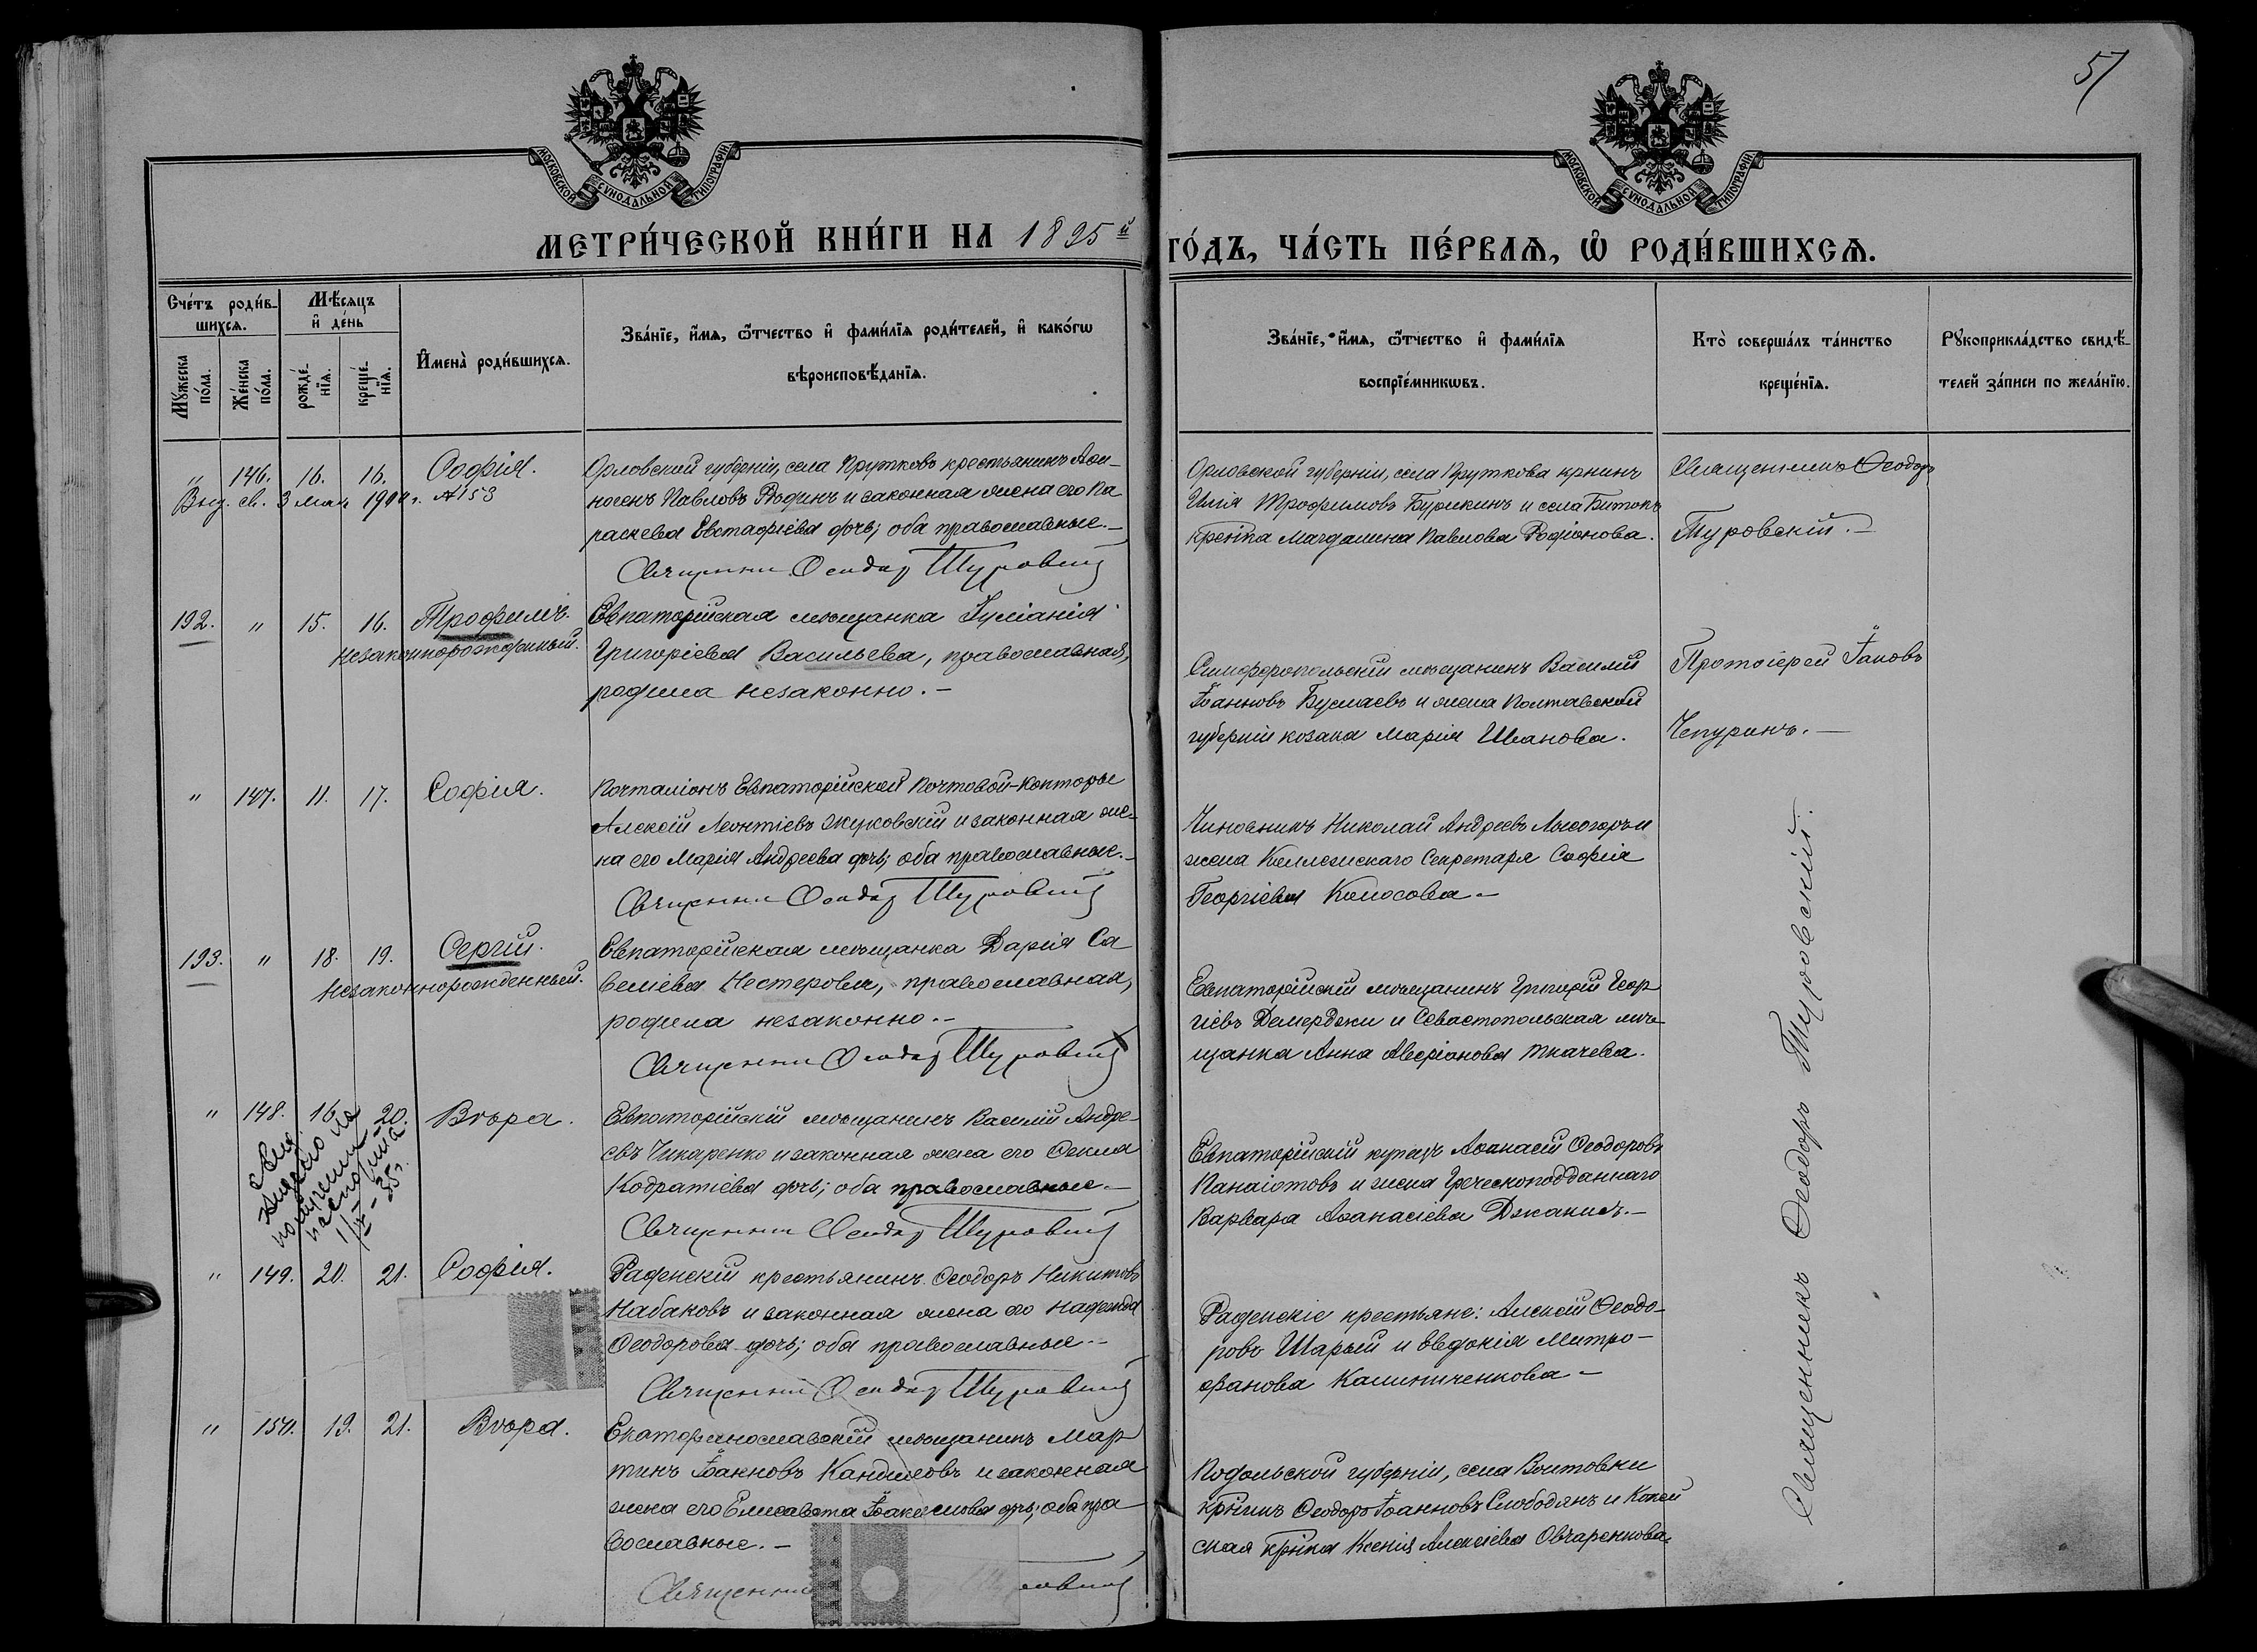 57
МОСКОВСКОЙ СѴНОДАЛЬНОЙ ТИПОГРАФІИ
МОСКОВСКОЙ СѴНОДАЛЬНОЙ ТИПОГРАФІИ
МЕТРИ́ЧЕСКОЙ КНИ́ГИ НА 1895й
ГО́ДЪ, ЧА́СТЬ ПЕ́РВАѦ, Ѡ҆ РОДИ́ВШИХСѦ.
Сче́тъ роди́в-
шихсѧ.
Мꙋ́жеска по́ла.
Же́нска по́ла.
Мѣ́сѧцъ
и҆ де́нь
рожде́-
нїѧ.
креще́-
нїѧ.
И҆мена̀ роди́вшихсѧ.
Зва́нїе, и҆́мѧ, ѻ҆́тчество и҆ фами́лїѧ роди́телей, и҆ како́гѡ
вѣроисповѣ́данїѧ.
Зва́нїе, и҆́мѧ, ѻ҆́тчество и҆ фами́лїѧ
воспрїе́мникѡвъ.
Кто̀ соверша́лъ та́инство
креще́нїѧ.
Рꙋкоприкла́дство свидѣ́-
телей за́писи по жела́нїю.
" 146. 16. 16. Софія.
Выд. св. 3 мая 190 г. №153
Орловской губерніи, села Пруткова крестьянинъ Аѳи-
ногенъ Павловъ Родинъ и законная жена его Па
раскева Евстафіева дочь; оба православные.–
Священникъ Ѳеодоръ Туровскій
Орловской губерніи, села Пруткова крнинъ
Илія Трофимовъ Бурикинъ и села Битокъ
крстнка Магдалина Павлова Родіонова.
Священникъ Ѳеодоръ
Туровскій.–
192. " 15. 16. Трофимъ.
Незаконнорожденный.
Евпаторійская мѣщанка Іуліанія
Григоріева Васильева, православная,
родила незаконно.–
Симферопольскій мѣщанинъ Василій
Іоанновъ Бусмаевъ и жена Полтавской
губерніи козака Марія Иванова.
Протоіерей Іаковъ
Чепуринъ.–
" 147. 11. 17. Софія.
Почталіонъ Евпаторійской Почтовой-Конторы
Алексій Леонтіевъ Жуковскій и законная же-
на его Марія Андреева дочь; оба православные.–
Священникъ Ѳеодоръ Туровскій
Чиновникъ Николай Андреевъ Лысогоръ и
жена Коллежскаго Секретаря Софія
Георгіева Колосова–
193. " 18. 19. Сергій.
Незаконнорожденный.
Евпаторійская мѣщанка Дарія Са
веліева Нестерова, православная,
родила незаконно.–
Священникъ Ѳеодоръ Туровскій
Евпаторійскій мѣщанинъ Григорій Геор
гіевъ Демерджи и Севастопольская мѣ-
щанка Анна Аверіанова Ткачева.
" 148. 16. 20. Вѣра.
свид.
выдано на
полученіе
паспорта
Евпаторійскій мѣщанинъ Василій Андре-
евъ Чикаренко и законная жена его Ѳекла
Кодратіева дочь; оба православные–
Священникъ Ѳеодоръ Туровскій
Евпаторійскій купецъ Аѳанасій Ѳеодоровъ
Панаіотовъ и жена Греческоподданнаго
Варвара Аѳанасіева Джакисъ.–
" 149. 20. 21. Софія.
Раденскій крестьянинъ Ѳеодоръ Никитовъ
Набаковъ и законная жена его Надежда
Ѳеодорова дочь; оба православные–
Священникъ Ѳеодоръ Туровскій
Раденскіе крестьяне: Алексій Ѳеодо-
ровъ Шарый и Евдокія Митро-
фанова Калиниченкова–
" 150. 19. 21. Вѣра.
Екатеринославскій мѣщанинъ Мар
тинъ Іоанновъ Кандиловъ и законная
жена его Елисавета Іоакимова дчь; оба пра
вославные.–
Священник овскій
Подольской губерніи, села Воитовки
крнинъ Ѳеодоръ Іоанновъ Слободянъ и Копай
ская крнка Ксенія Алексіева Овчаренкова.
Священникъ Ѳеодоръ Туровскій.